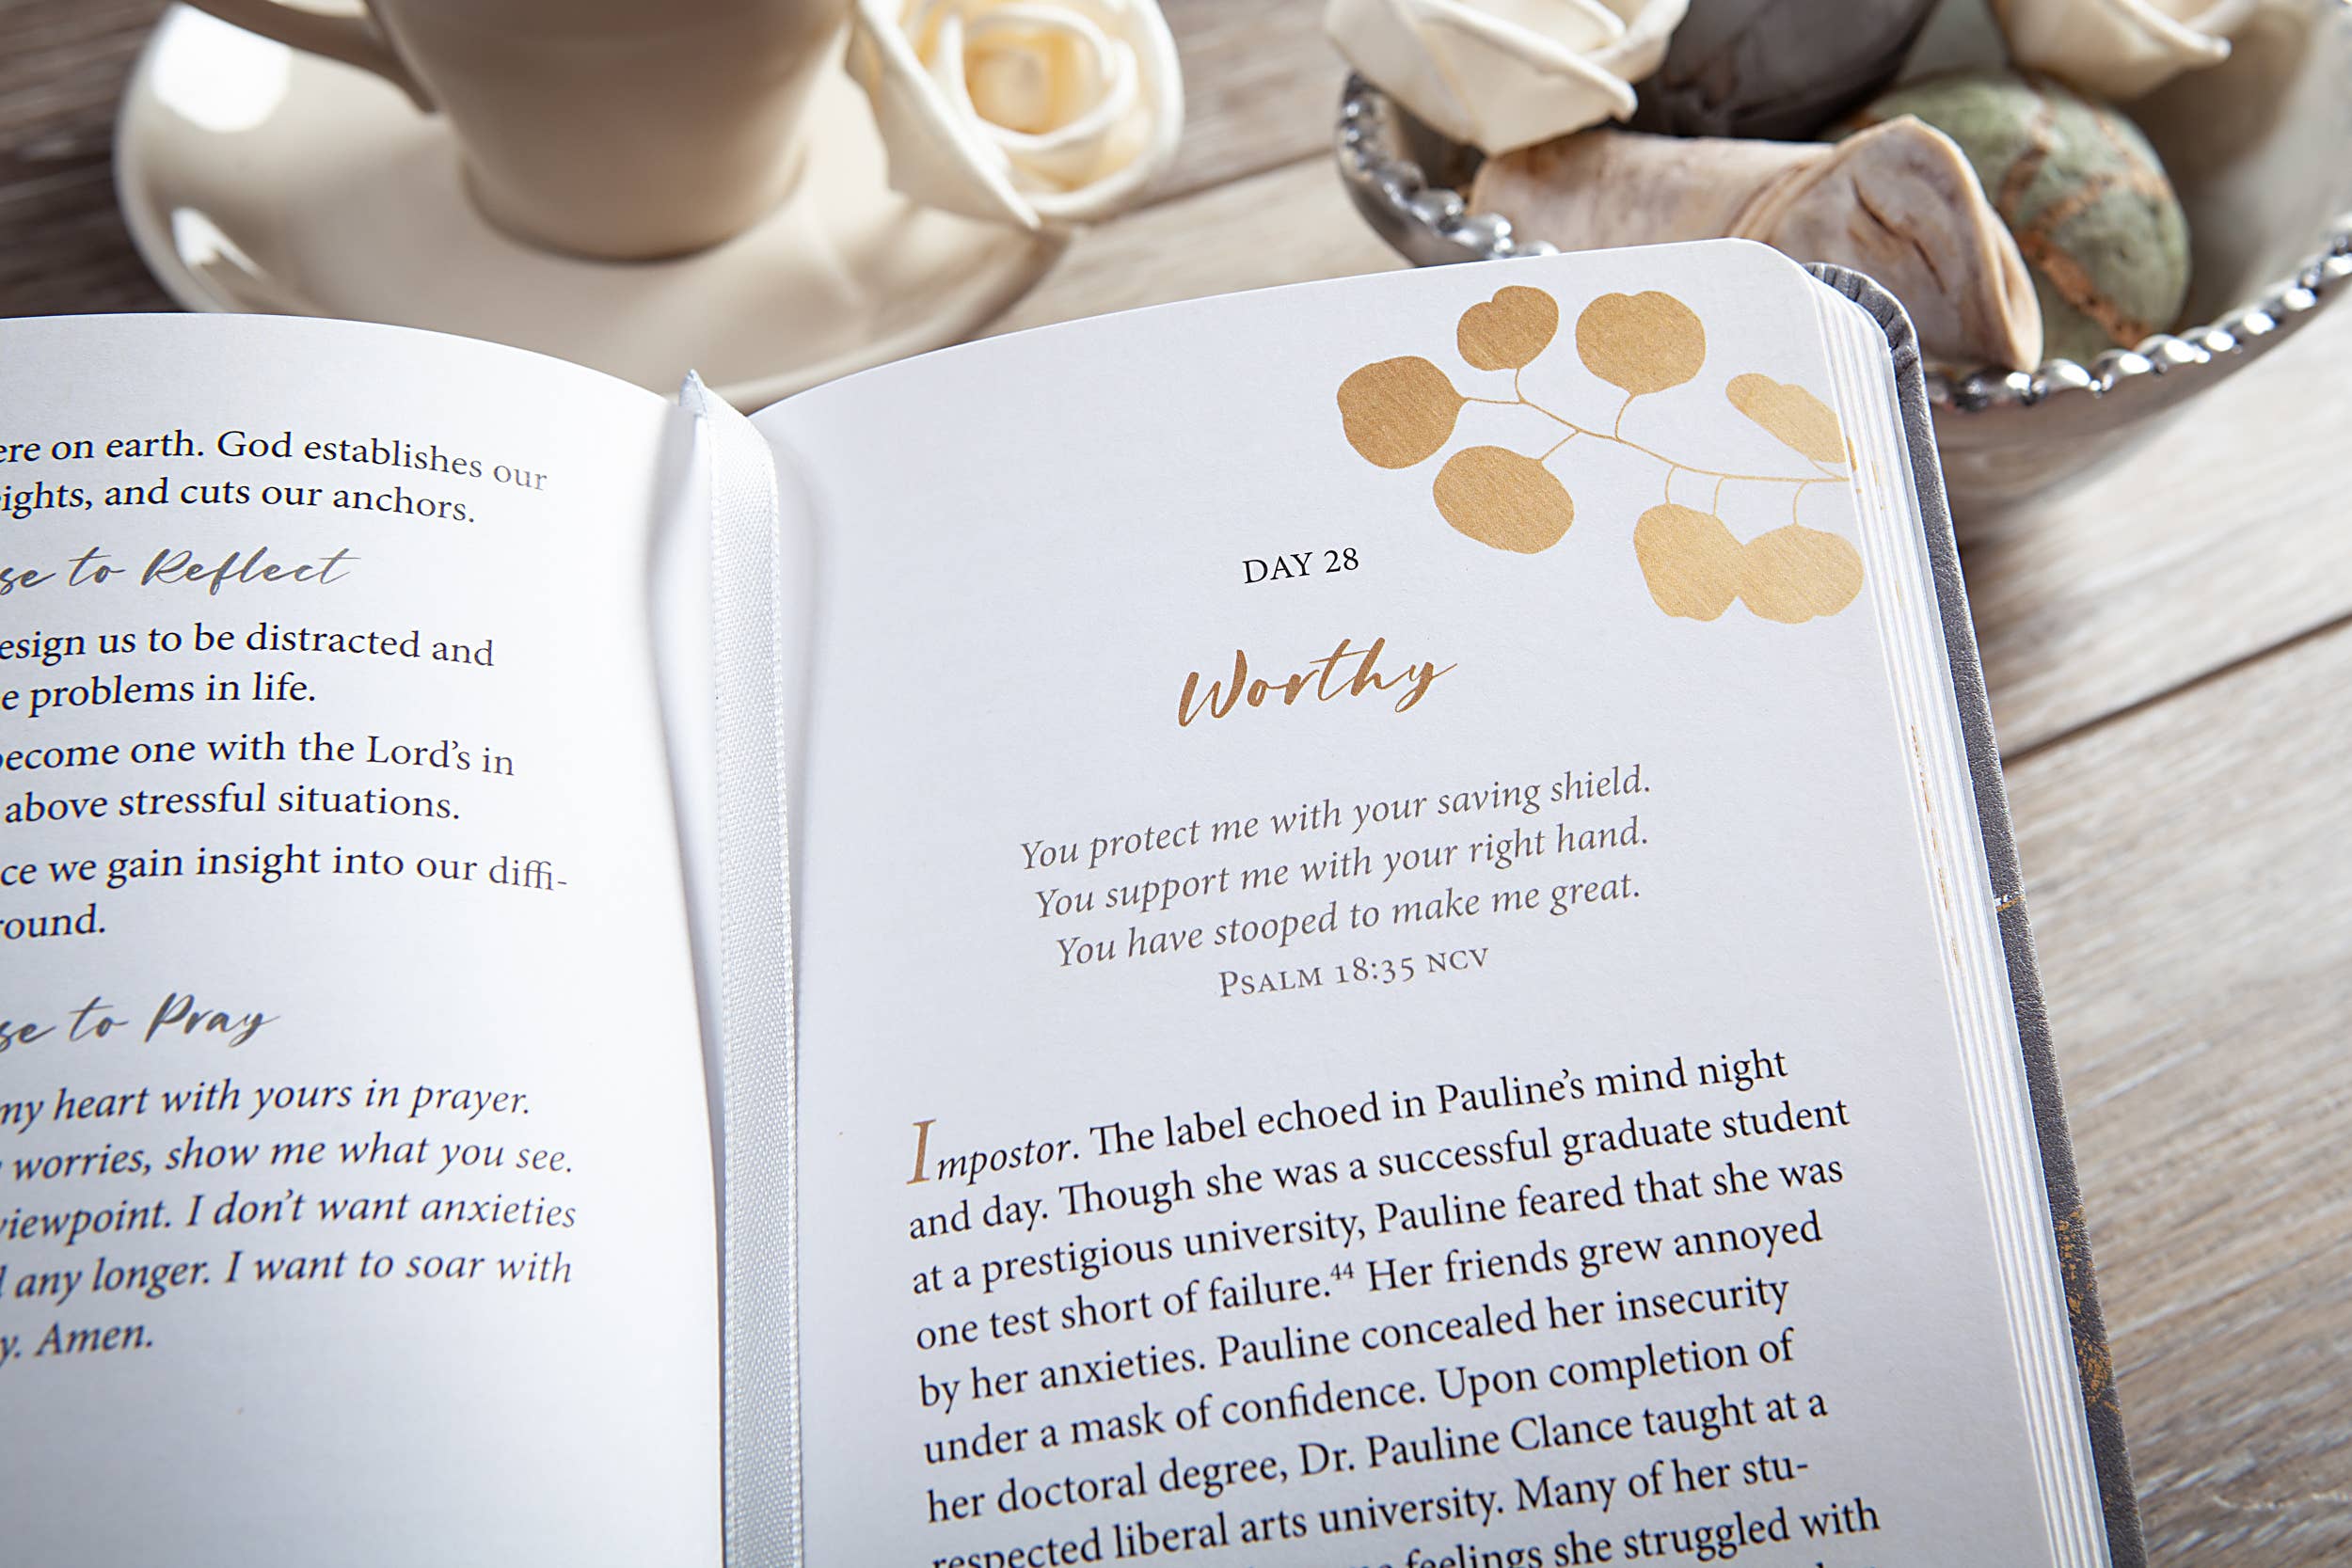 ere on earth. God establishes our
ights, and cuts our anchors.
se to Reflect
esign us to be distracted and
e problems in life.
become one with the Lord’s in
above stressful situations.
ce we gain insight into our diffi-
round.
se to Pray
my heart with yours in prayer.
worries, show me what you see.
viewpoint. I don’t want anxieties
any longer. I want to soar with
y. Amen.
DAY 28
Worthy
You protect me with your saving shield.
You support me with your right hand.
You have stooped to make me great.
PSALM 18:35 NCV
Impostor. The label echoed in Pauline’s mind night
and day. Though she was a successful graduate student
at a prestigious university, Pauline feared that she was
one test short of failure.44 Her friends grew annoyed
by her anxieties. Pauline concealed her insecurity
under a mask of confidence. Upon completion of
her doctoral degree, Dr. Pauline Clance taught at a
respected liberal arts university. Many of her stu-
feelings she struggled with